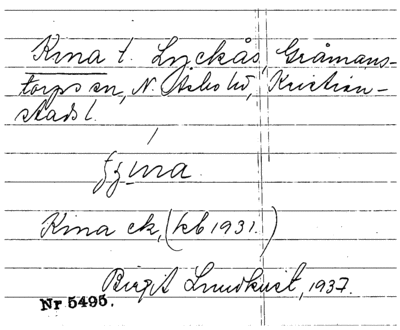 Kina t. Lyckås, Gråmans-
torps sn, N. Åsbo hd, Kristian-
stads l.
Kina ek, (kb 1931.)
Birgit Lundkvist, 1937.
Nr 5495.